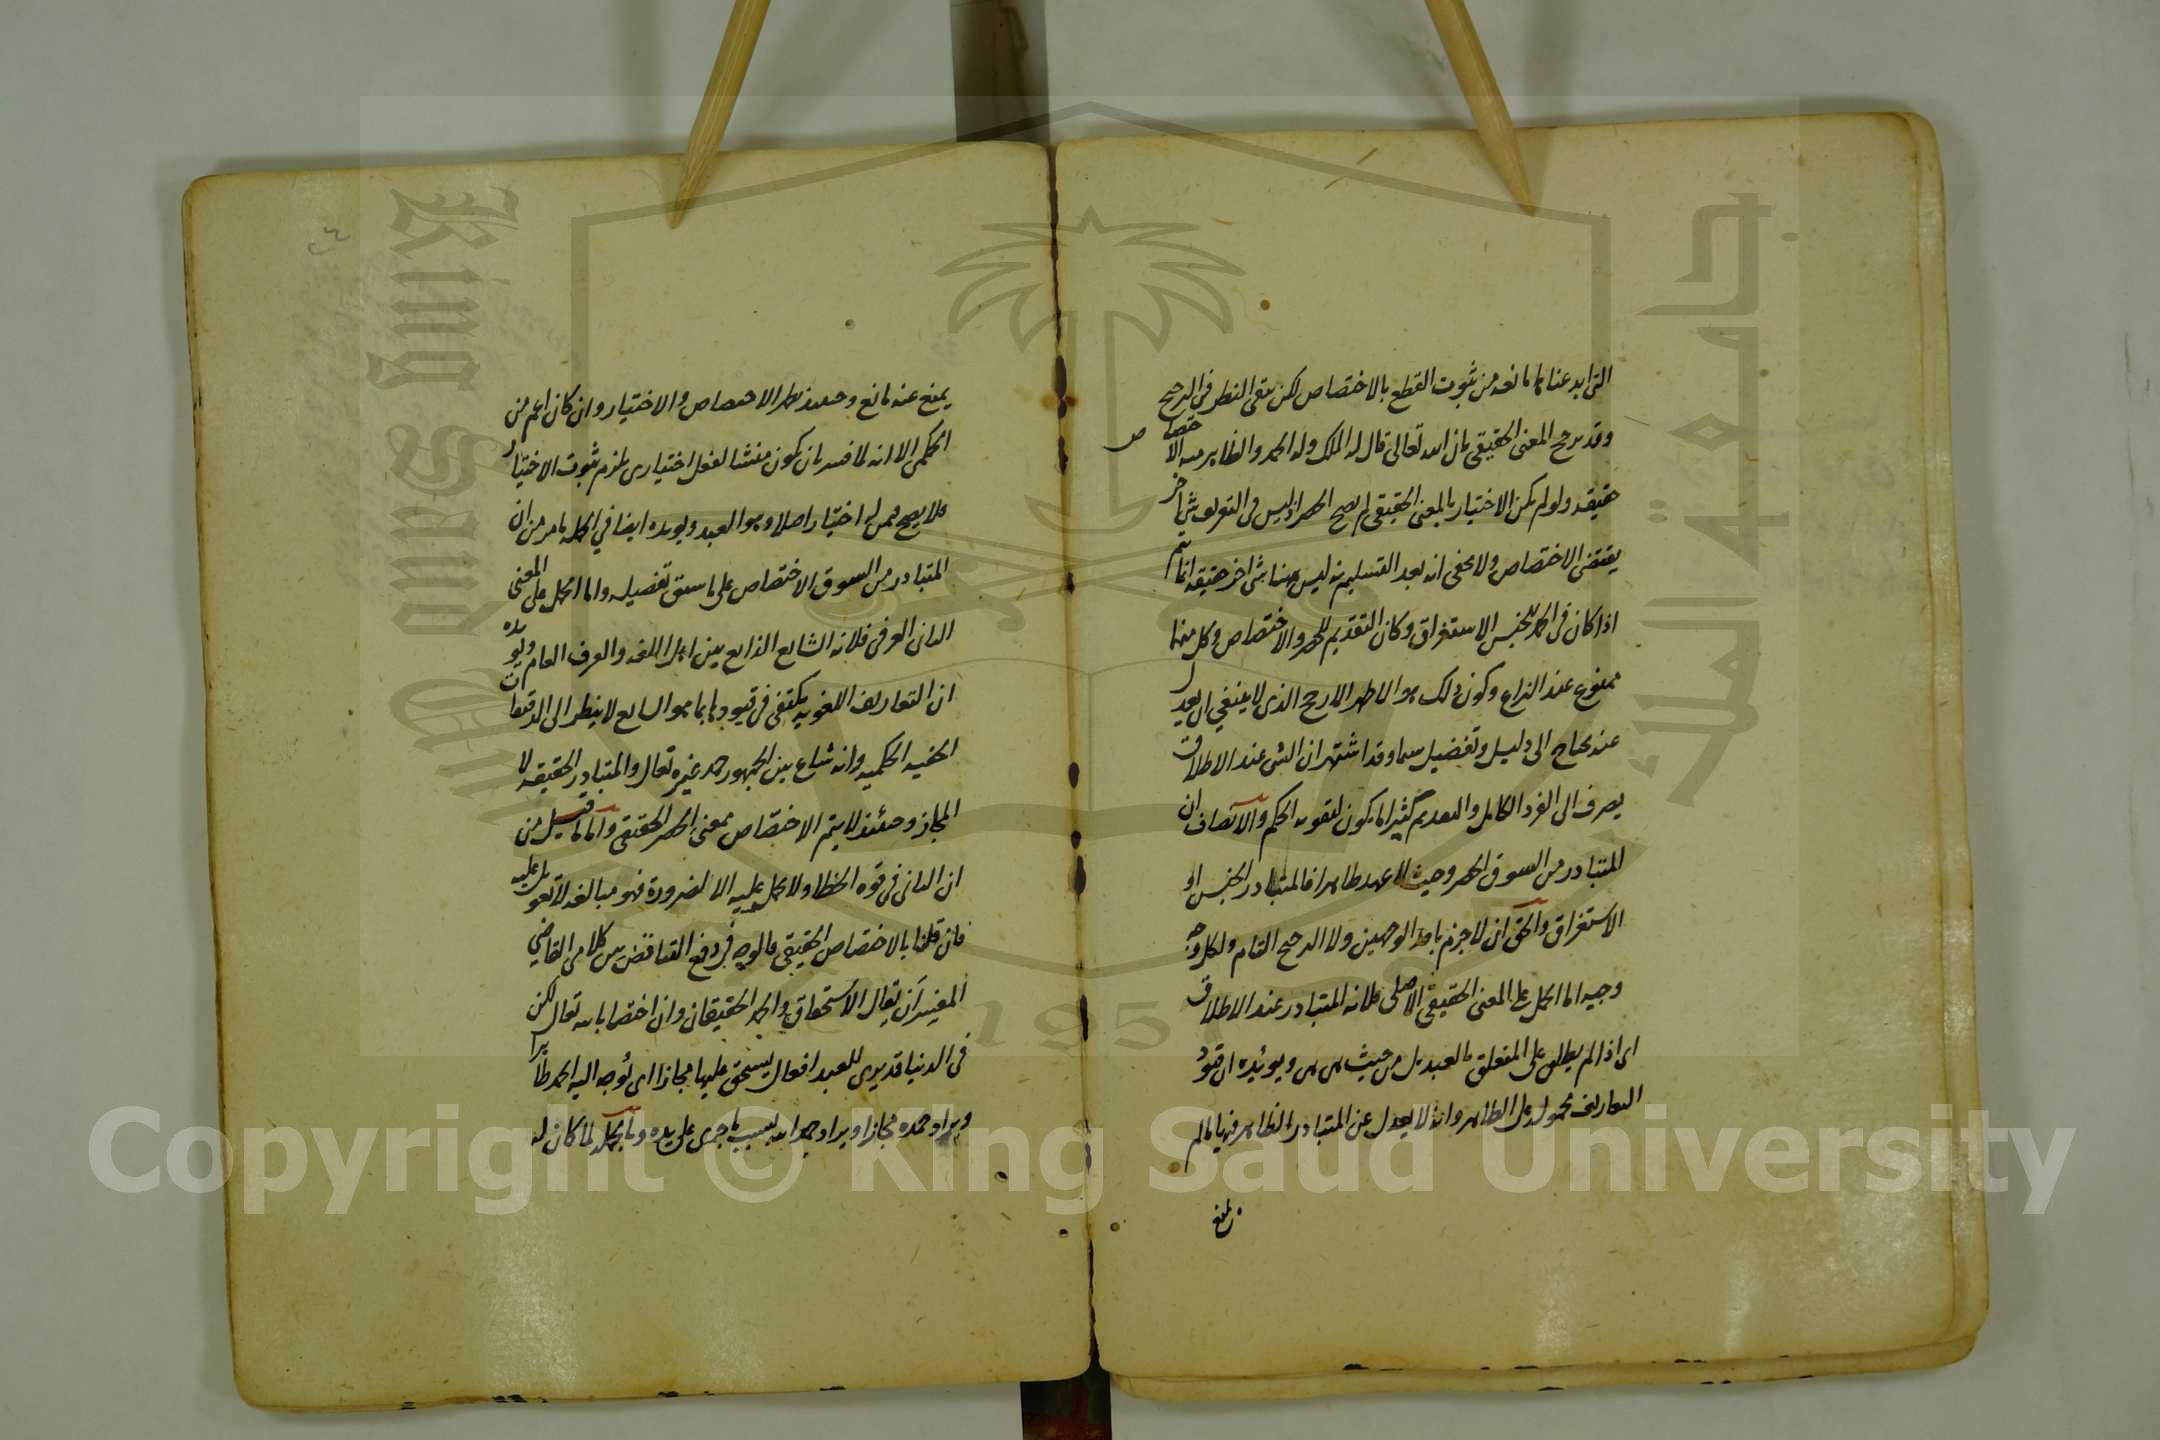 التى ابدعناها مانعه من ثبوت القطع بالاختصاص لكن بقى النظر فى الترجيح
وقد يرجح المعنى الحقيقى بان الله تعالى قال له الملك وله الحمد والظاهر منه الاختصاص
حقيقه ولو لم يكن الاختيار بالمعنى الحقيقى لم يصح الحصر اذ ليس فى التعريف شئ اخر
يقتضى الاختصاص ولا يخفى انه بعد التسليم فيه ليس ههنا شئ اخر حقيقه انما يتم
اذا كان فى الحمد للجنس الاستغراق وكان التقديم للحصر والاختصاص وكل منهما
ممنوع عند النزاع وكون ذلك هو الاظهر الارجح الذى لا ينبغي ان يعدل
عنه يحتاج الى دليل وتفضيل سيما وقد اشتهر ان الشئ عند الاطلاق
يصرف الى الفرد الكامل والتقديم كثيرا ما يكون لتقويه الحكم والانصاف ان
المتبادر من السوق الحصر وحيث لا عهد ظاهرا فالمتبادر الجنس او
الاستغراق والحق ان لا جزم باحد الوجهين ولا الترجيح التام ولكل وجه
وجيه اما الحمل على المعنى الحقيقى الاصلى فلانه المتبادر عند الاطلاق
اى اذا لم يطلق على المتعلق بالعبد بل من حيث هى هى ويؤيده ان قيود
التعاريف محمول على الظاهر وانه لا يعدل عن المتبادر الظاهر فيها ما لم
يمنع
يمنع عنه مانع وحينئذ يظهر الاختصاص والاختيار وان كان اعم من
الحكمى الا انه لما فسر بان يكون منشأ لفعل اختيارى يلزم ثبوت الاختيار
فلا يصح فيمن له اختيار اصلا وهو العبد ويؤيده ايضا في الجمله ما مر من ان
المتبادر من السوق الاختصاص على ما سبق تفصيله واما الحمل على المعنى
الثانى العرفى فلانه الشايع الذايع بين اهل اللغه والعرف العام ويؤيده
ان التعاريف اللغويه يكتفى فى قيودها بما هو الشايع لا ينظر الى الدقيقات
الخفيه الحكميه وانه شاع بين الجمهور حمد غيره تعالى والمتبادر الحقيقه لا
المجاز وحينئذ لا يتم الاختصاص بمعنى الحصر الحقيقى واما ما قيل من
ان الثانى فى قوه الخطا ولا يحمل عليه الا لضرورة فهو مبالغه لا تعويل عليه
فان قلنا بالاختصاص الحقيقى فالوجه فى دفع التناقض بين كلامى القاضي
المفيد ان يقال الاستحقاق والحمد الحقيقيان وان اختصا بالله تعالى لكن
فى الدنيا قد يرى للعبد افعال يستحق عليها مجازا اى توجه اليه الحمد ظاهرا
ويراد حمده مجازا ويراد حمد الله بسبب ما جرى على يده وبالجمله لما كان له